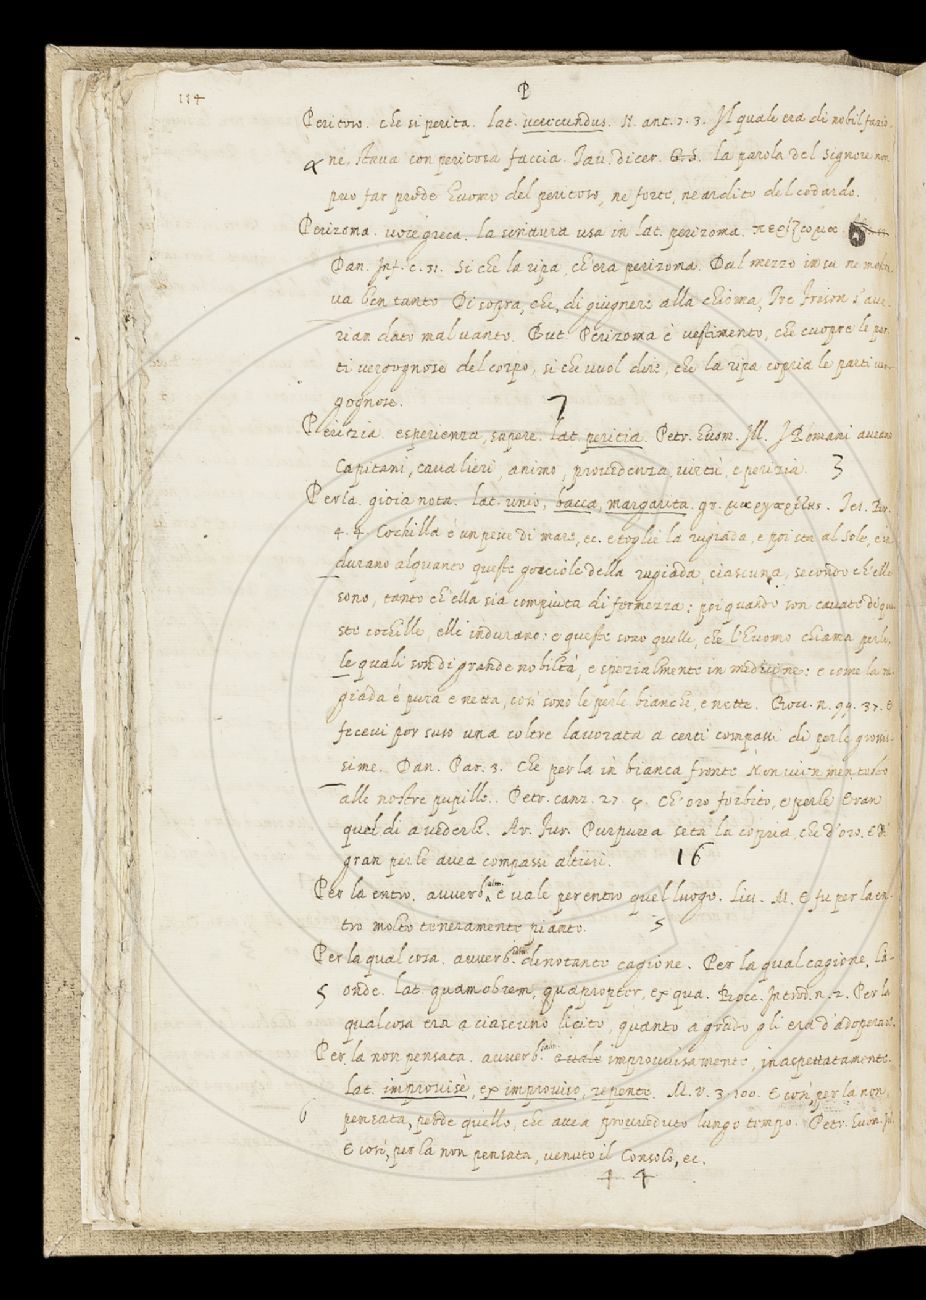 114
P
Peritoso. che si perita. lat. verecundus. N. ant. 7. 3. Il quale era di nobil fazio-
ne, stava con peritosa faccia. Tav. dicer. La parola del Signore non
può far prode huomo del peritoso, ne forte, ne ardito del codardo.
Perizoma. voce greca. la scrittura usa in lat. perizoma. περίζωμα.
Dan. Inf. c. 31. Si che la ripa, ch'era perizoma. Dal mezzo in su ne mostra
va ben tanto Di sopra, che, di giugnere alla chioma, Tre Frison s'ave-
rian dato mal vanto. But. Perizoma è vestimento, che cuopre le par-
ti vergognose del corpo, si che vuol dire, che la ripa copria le parti ver-
gognose.
7
Perizia. esperienza, sapere. lat. peritia. Petr. Huom. Ill. I Romani aveano
Capitani, cavalieri, animo, provedenza, virtù, e perizia. 3
Perla. gioia nota. lat. unio, bacca, margarita. gr. μαργαρίτης. Tes. Br.
4. 4. Cochilla è un pesce di mare, ec. e toglie la rugiada, e poi sta al Sole, e in
durano alquanto queste gocciole della rugiada, ciascuna, secondo ch'elle
sono, tanto ch'ella sia compiuta di fermezza: poi quando son cavate di que
ste cochille, elle indurano: e queste sono quelle, che l'huomo chiama perle,
le quali son di grande nobiltà, e spezialmente in medicine: e come la ru
giada è pura e netta, così sono le perle bianche, e nette. Bocc. n. 99. 37. E
fecevi por suso una coltre lavorata a certi compassi di perle grossis-
sime. Dan. Par. 3. Che perla in bianca fronte Non vien men tosto
alle nostre pupille. Petr. canz. 27. Ch'oro forbito, e perle Eran
quel dì a vederle. Ar. Fur. Purpurea seta la copria, che d'oro, E di
gran perle avea compassi altieri. 16
Per la entro. avverb. e vale per entro quel luogo. Liv. M. E fu per la en-
tro molto teneramente pianto. 5
Per la qual cosa. avverb. denotante cagione. Per la qual cagione, la-
5 onde. lat. quamobrem, quapropter, ex qua. Bocc. Introd. n. 2. Per la
qual cosa era a ciascuno licito, quanto a grado gli era d'adoperare.
Per la non pensata. avverb. e vale improvvisamente, inaspettatamente.
lat. improvisè, ex improviso, repente. M. V. 3. 100. E così, per la non
pensata, perde quello, che avea proveduto lungo tempo. Petr. huom. Ill.
E così, per la non pensata, venuto il Consolo, ec.